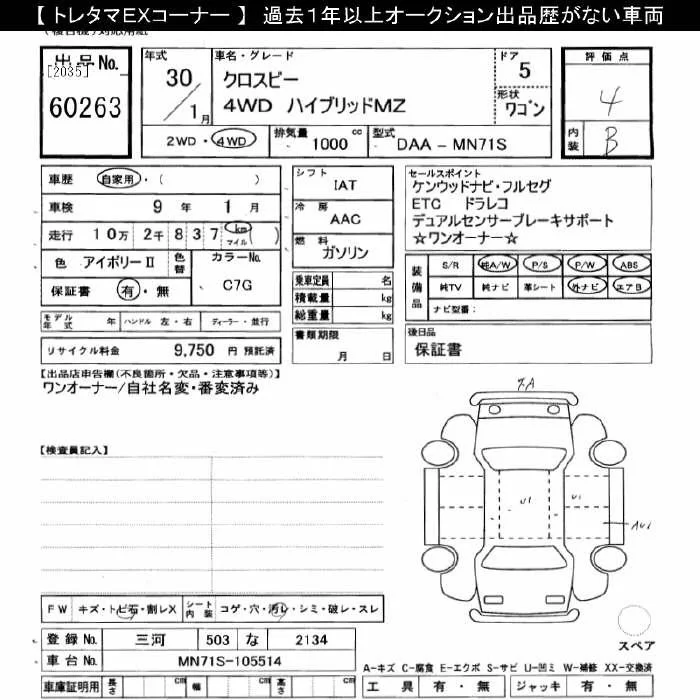 【 トレタマEXコーナー 】 過去1年以上オークション出品歴がない車両
出品No.
[2035]
60263
年式
30
1月
車名・グレード
クロスビー
4WD ハイブリッドMZ
ドア
5
形状
ワゴン
2WD・4WD
排気量
1000 cc
型式
DAA - MN71S
評価点
4
内装
B
車歴 自家用・( )
車検 9 年 1 月
走行 10万 2千 8 3 7 km マイル ( )
色 アイボリーⅡ
色替
カラーNo.
C7G
保証書 有・無
シフト
IAT
冷房
AAC
燃料
ガソリン
乗車定員 名
積載量 kg
総重量 kg
書類期限
月 日
セールスポイント
ケンウッドナビ・フルセグ
ETC ドラレコ
デュアルセンサーブレーキサポート
☆ワンオーナー☆
装備品
S/R 純A/W P/S P/W ABS
純TV 純ナビ 革シート 外ナビ エアB
ナビ型番:
後日品
保証書
モデル年式 年 ハンドル 左・右 ディーラー・並行
リサイクル料金 9,750 円 預託済
【出品店申告欄(不良箇所・欠品・注意事項等)】
ワンオーナー/自社名変・番変済み
【検査員記入】
FW キズ・トビ石・割レX
シート内装 コゲ・穴・汚レ・シミ・破レ・スレ
登録 No. 三河 503 な 2134
車台 No. MN71S-105514
車庫証明用 長さ cm 幅 cm 高さ cm
XA
U1
U1
AU1
スペア
A-キズ C-腐食 E-エクボ S-サビ U-凹ミ W-補修 XX-交換済
工具 有・無 ジャッキ 有・無